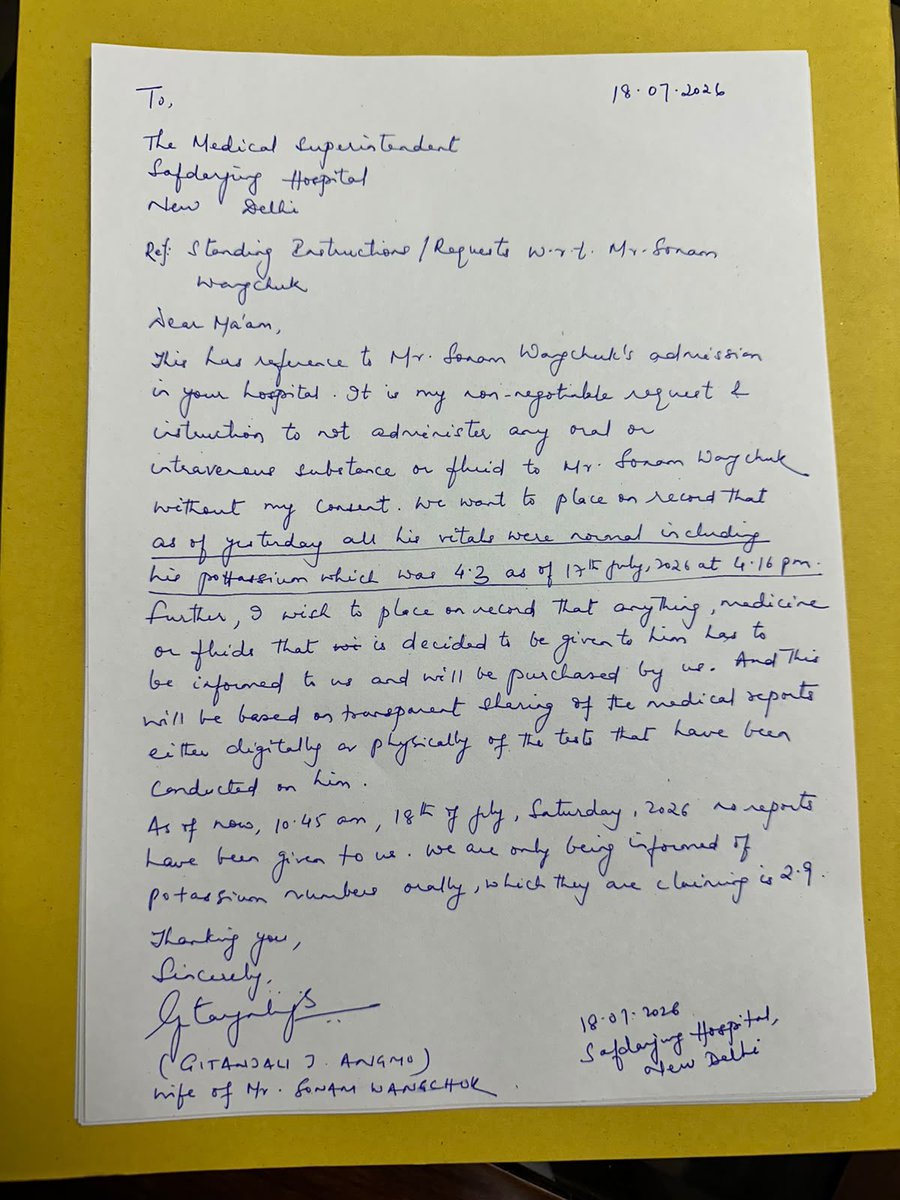 To,
18.07.2026
The Medical Superintendent
Safdarjung Hospital
New Delhi
Ref: Standing Instructions/Requests w.r.t. Mr. Sonam
Wangchuk
Dear Ma'am,
This has reference to Mr. Sonam Wangchuk's admission
in your hospital. It is my non-negotiable request &
instruction to not administer any oral or
intravenous substance or fluid to Mr. Sonam Wangchuk
without my consent. We want to place on record that
as of yesterday all his vitals were normal including
his pottassium which was 4.3 as of 17th July, 2026 at 4.16 pm.
Further, I wish to place on record that anything, medicine
or fluids that is decided to be given to him has to
be informed to us and will be purchased by us. And this
will be based on transparent sharing of the medical reports
either digitally or physically of the tests that have been
conducted on him.
As of now, 10.45 am, 18th of July, Saturday, 2026 no reports
have been given to us. We are only being informed of
potassium numbers orally, which they are claiming is 2.9.
Thanking you,
Sincerely,
(GITANJALI J. ANGMO)
wife of Mr. SONAM WANGCHUK
18.07.2026
Safdarjung Hospital,
New Delhi